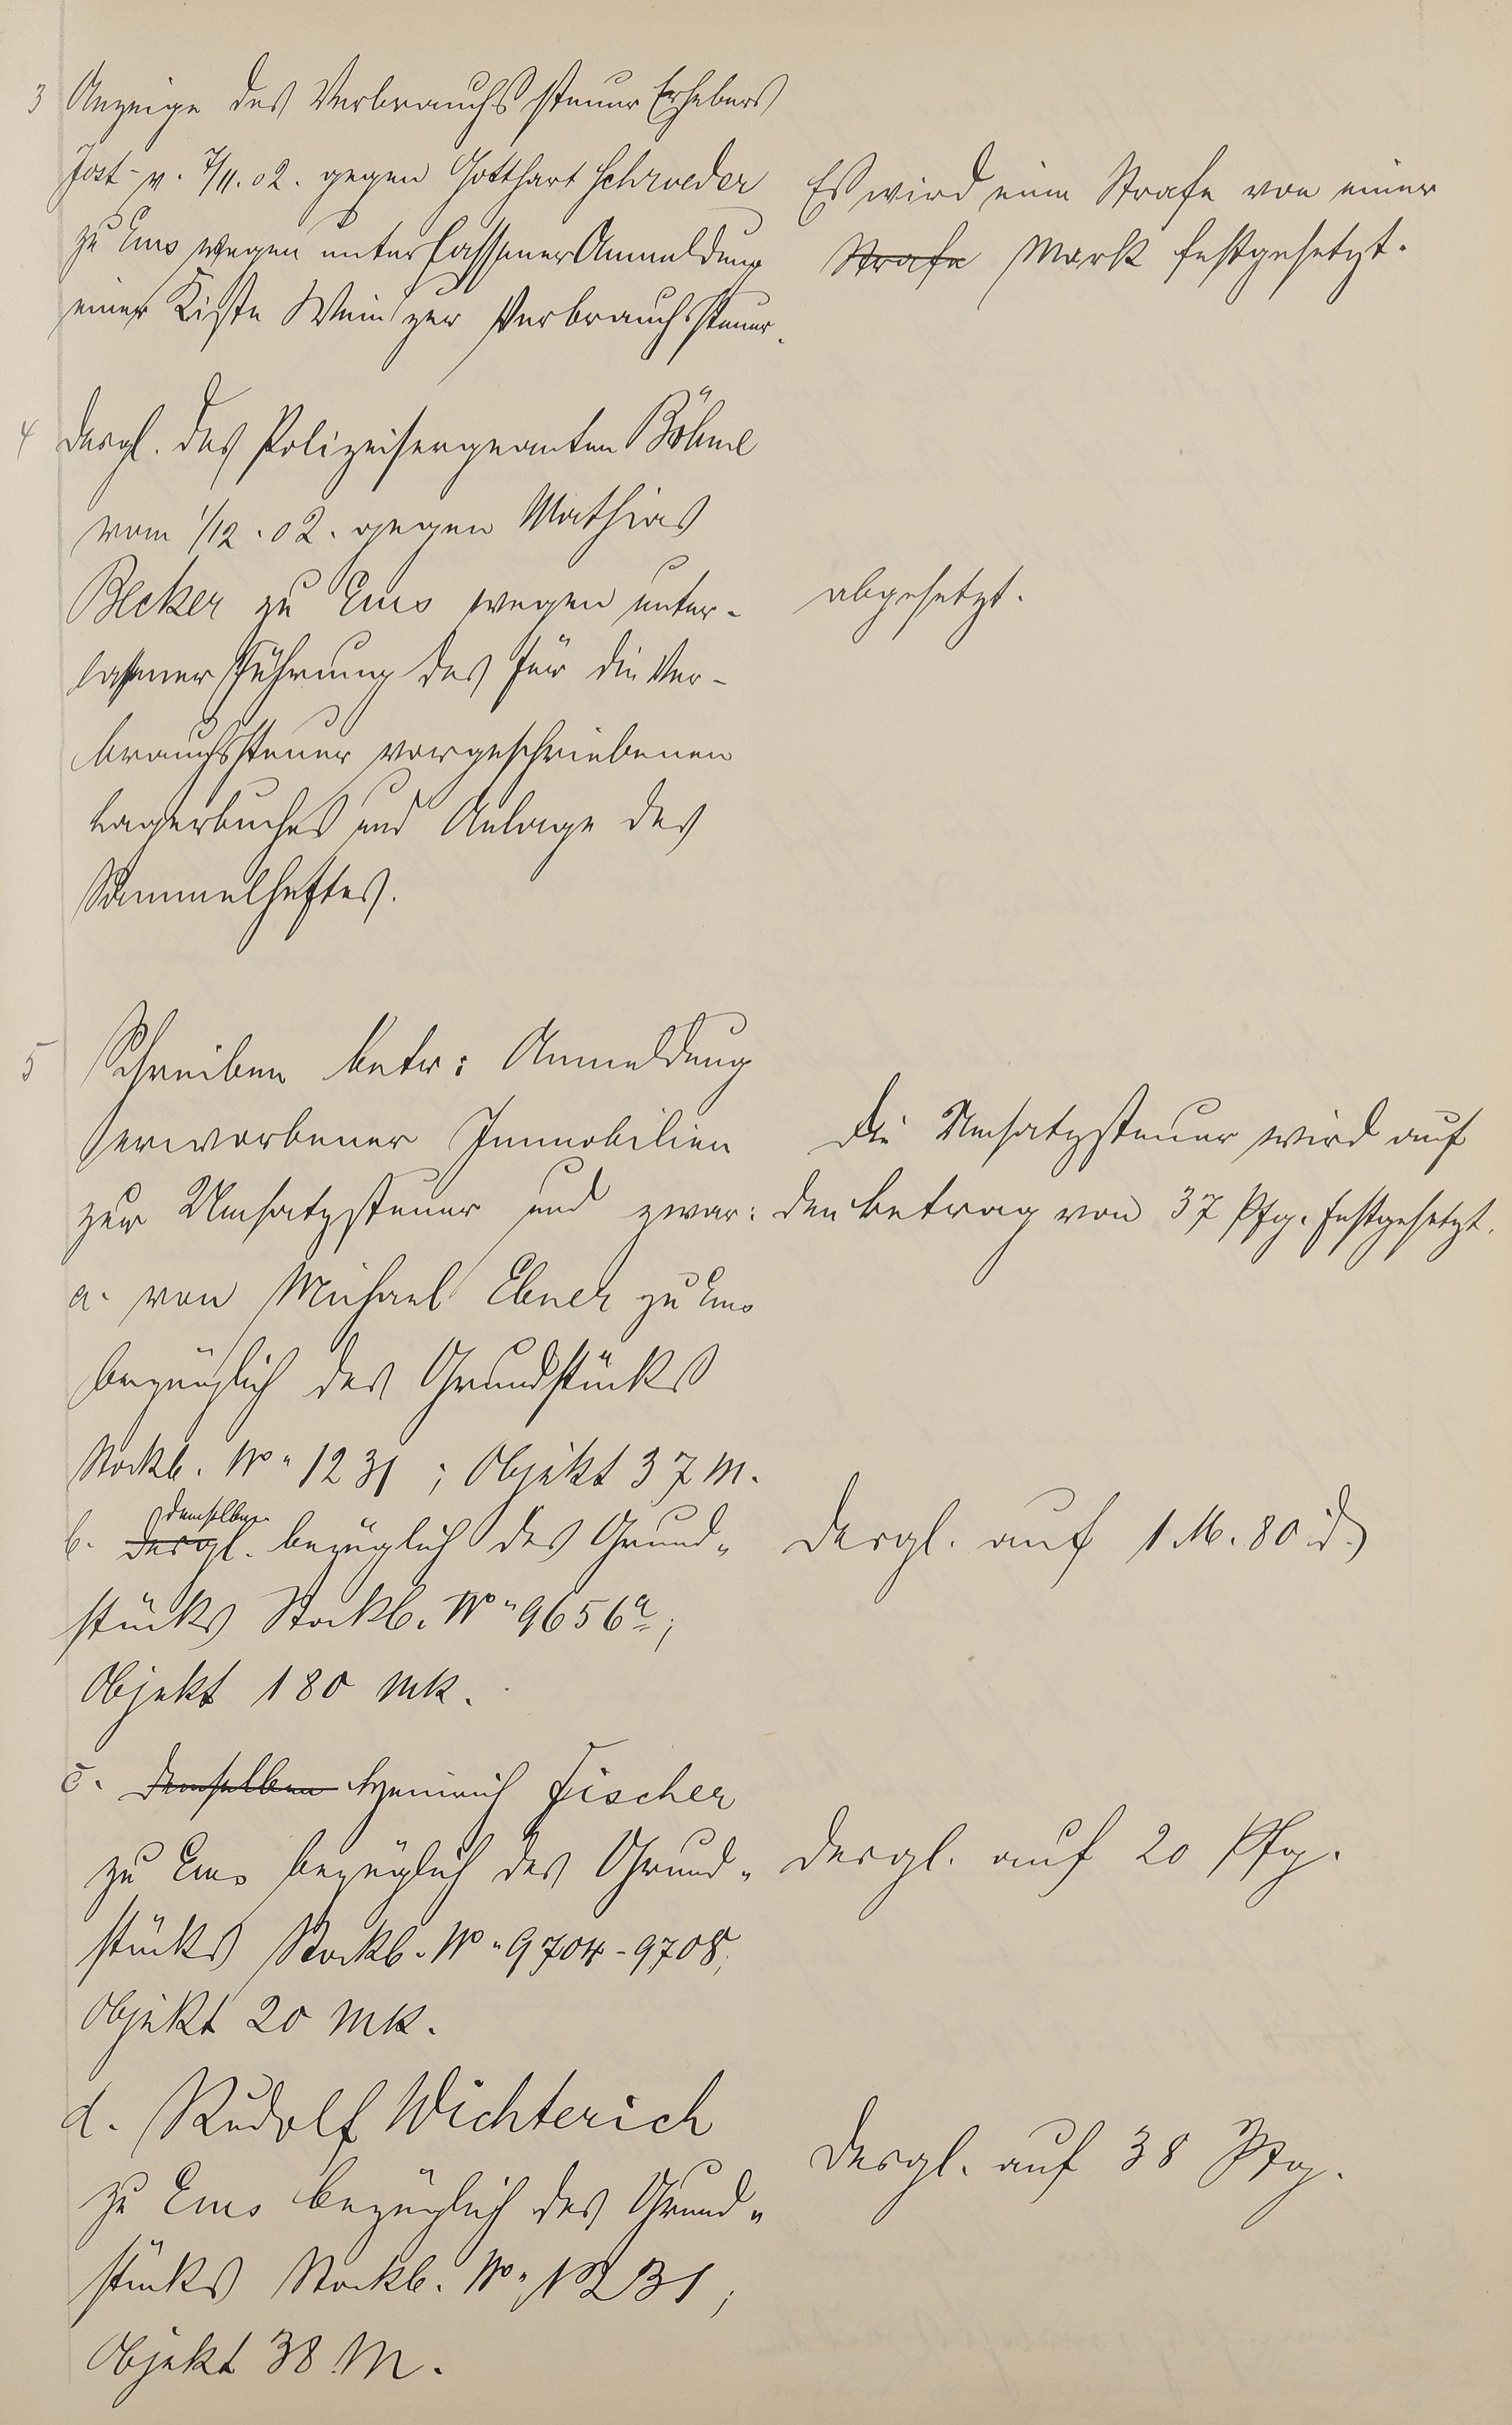 3 Anzeige des Verbrauchssteuer Erhebers
Jost v. 7/11.02. gegen Gotthart Schroeder
zu Ems wegen unterlassener Anmeldung
einer Kiste Wein zur Verbrauchssteuer.
Es wird eine Strafe von einer
Strafe Mark festgesetzt.
4 Desgl. des Polizeisergeanten Böhme
vom 1/12.02. gegen Mathias
Becker zu Ems wegen unter-
lassener Führung des für die Ver-
brauchssteuer vorgeschriebenen
Lagerbuches und Anlage des
Sammelheftes.
abgesetzt.
5 Schreiben betr: Anmeldung
erworbener Immobilien
zur Umsatzsteuer und zwar:
a. von Michael Ebner zu Ems
bezüglich des Grundstücks
Stockb. No 1231; Objekt 37 M.
Die Umsatzsteuer wird auf
den Betrag von 37 Pfg. festgesetzt.
demselben
b. desgl. bezüglich des Grund-
stücks Stockb. No 9656a;
Objekt 180 Mk.
Desgl. auf 1 M. 80 d.
c. demselben Heinrich Fischer
zu Ems bezüglich des Grund-
stücks Stockb. No 9704-9708;
Objekt 20 Mk.
Desgl. auf 20 Pfg.
d. Rudolf Wichterich
zu Ems bezüglich des Grund-
stücks Stockb. No 1231;
Objekt 38 M.
Desgl. auf 38 Pfg.